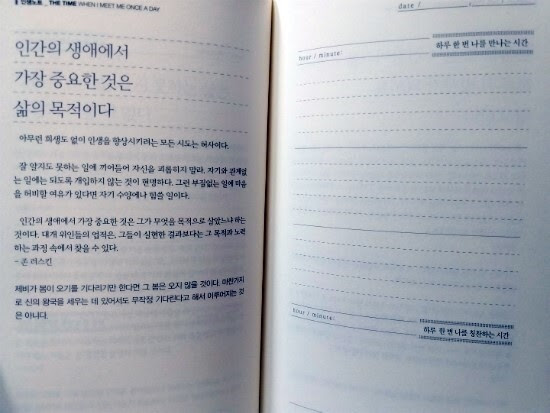 인생노트 _ THE TIME WHEN I MEET ME ONCE A DAY
인간의 생애에서
가장 중요한 것은
삶의 목적이다
아무런 희생도 없이 인생을 향상시키려는 모든 시도는 허사이다.
잘 알지도 못하는 일에 끼어들어 자신을 괴롭히지 말라. 자기와 관계없
는 일에는 되도록 개입하지 않는 것이 현명하다. 그런 부질없는 일에 마음
을 허비할 여유가 있다면 자기 수양에나 힘쓸 일이다.
인간의 생애에서 가장 중요한 것은 그가 무엇을 목적으로 살았느냐 하는
것이다. 대개 위인들의 업적은, 그들이 실현한 결과보다는 그 목적과 노력
하는 과정 속에서 찾을 수 있다.
- 존 러스킨
제비가 봄이 오기를 기다리기만 한다면 그 봄은 오지 않을 것이다. 마찬가지
로 신의 왕국을 세우는 데 있어서도 무작정 기다린다고 해서 이루어지는 것
은 아니다.
date /
hour / minute/
하루 한 번 나를 만나는 시간
hour / minute/
하루 한 번 나를 칭찬하는 시간